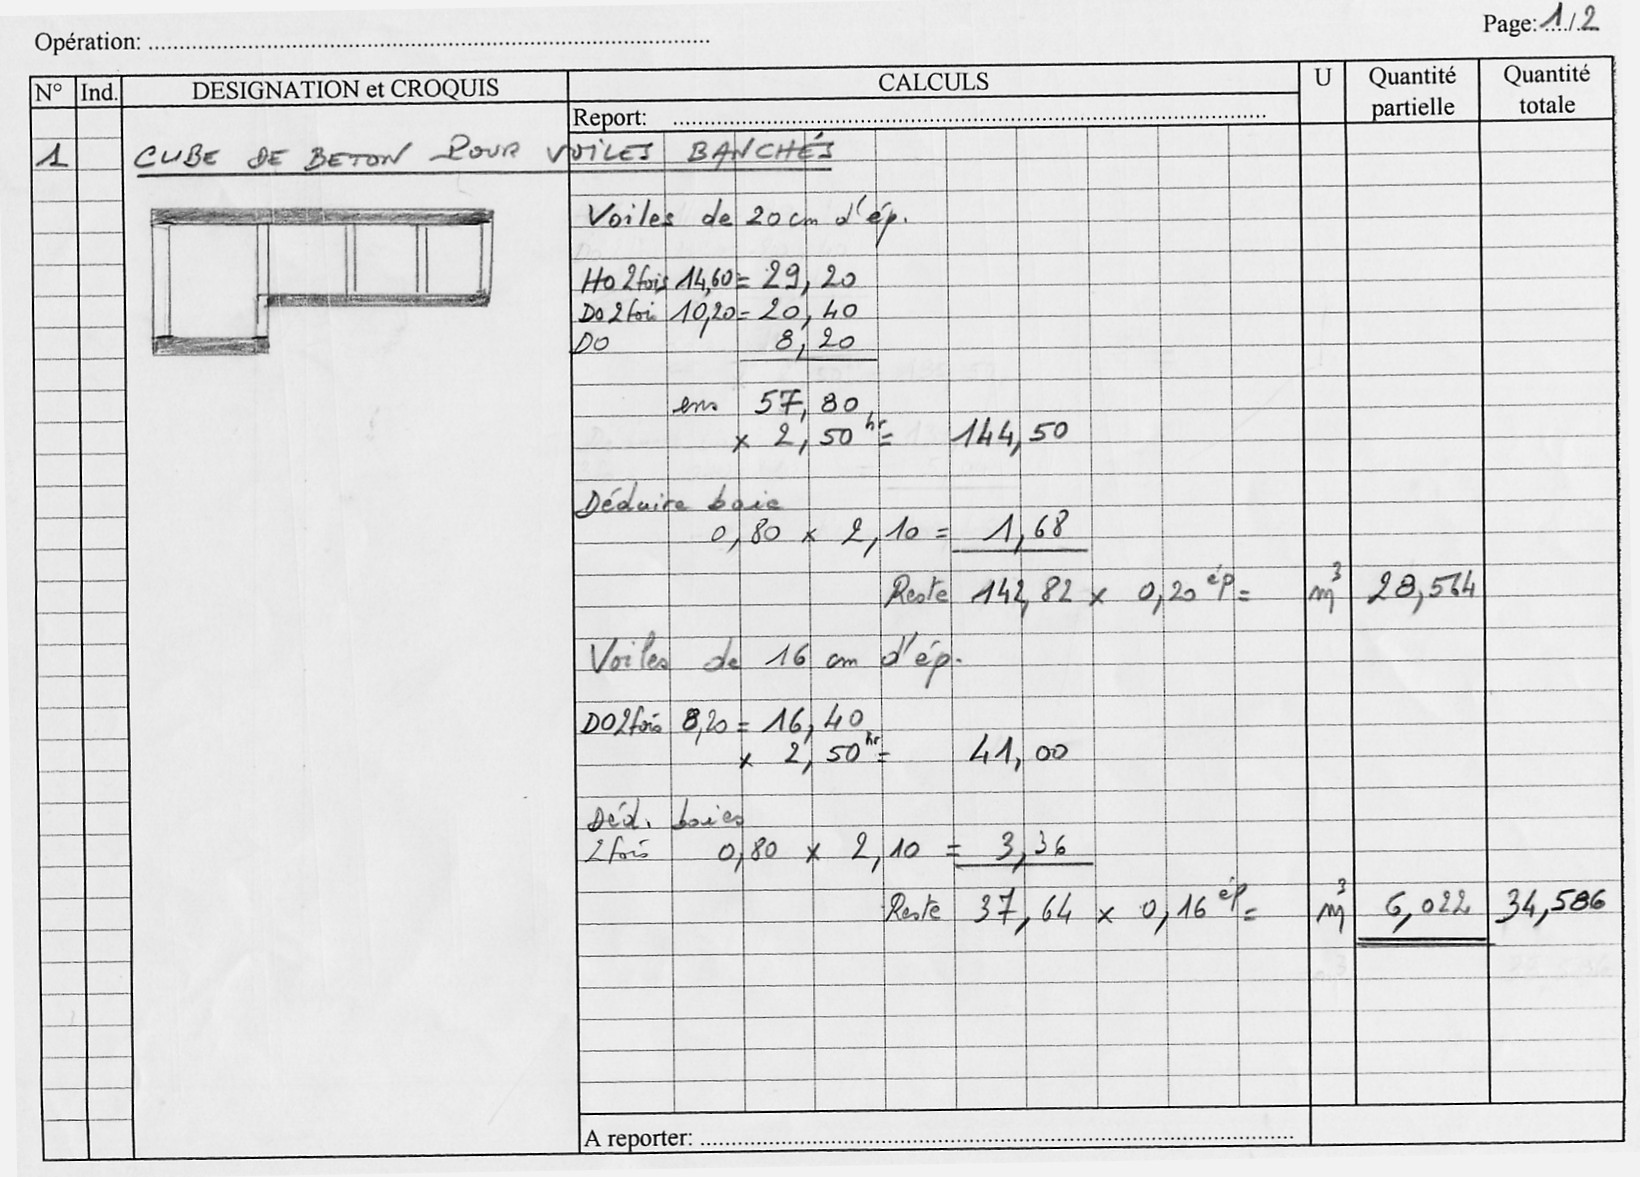 Page: 1 / 2
Opération: ......................................................................................
N° Ind. DESIGNATION et CROQUIS CALCULS U Quantité partielle Quantité totale
Report: ......................................................................................
1 CUBE DE BETON POUR VOILES BANCHÉS
Voiles de 20 cm d'ép.
Ho 2fois 14,60 = 29,20
Do 2fois 10,20 = 20,40
DO 8,20
ens 57,80
x 2,50 hr = 144,50
Déduire baie
0,80 x 2,10 = 1,68
Reste 142,82 x 0,20 ép = m³ 28,564
Voiles de 16 cm d'ép.
DO 2fois 8,20 = 16,40
x 2,50 hr = 41,00
Déd. baies
2fois 0,80 x 2,10 = 3,36
Reste 37,64 x 0,16 ép = m³ 6,022 34,586
A reporter: ......................................................................................